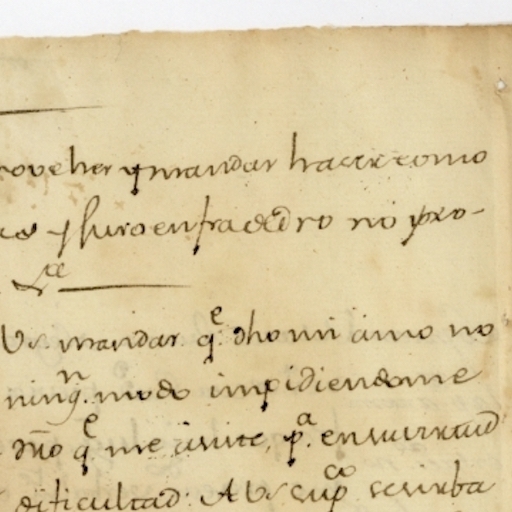 roveher y mandar hacer como
y Juro en fra dro no pro-
&ce
Vs. mandar q.e dho mi amo no
ning.n modo impidiendome
Dro q.e me asiste, p.a en su virtud
dificultad: A Vs sup.co se sirba